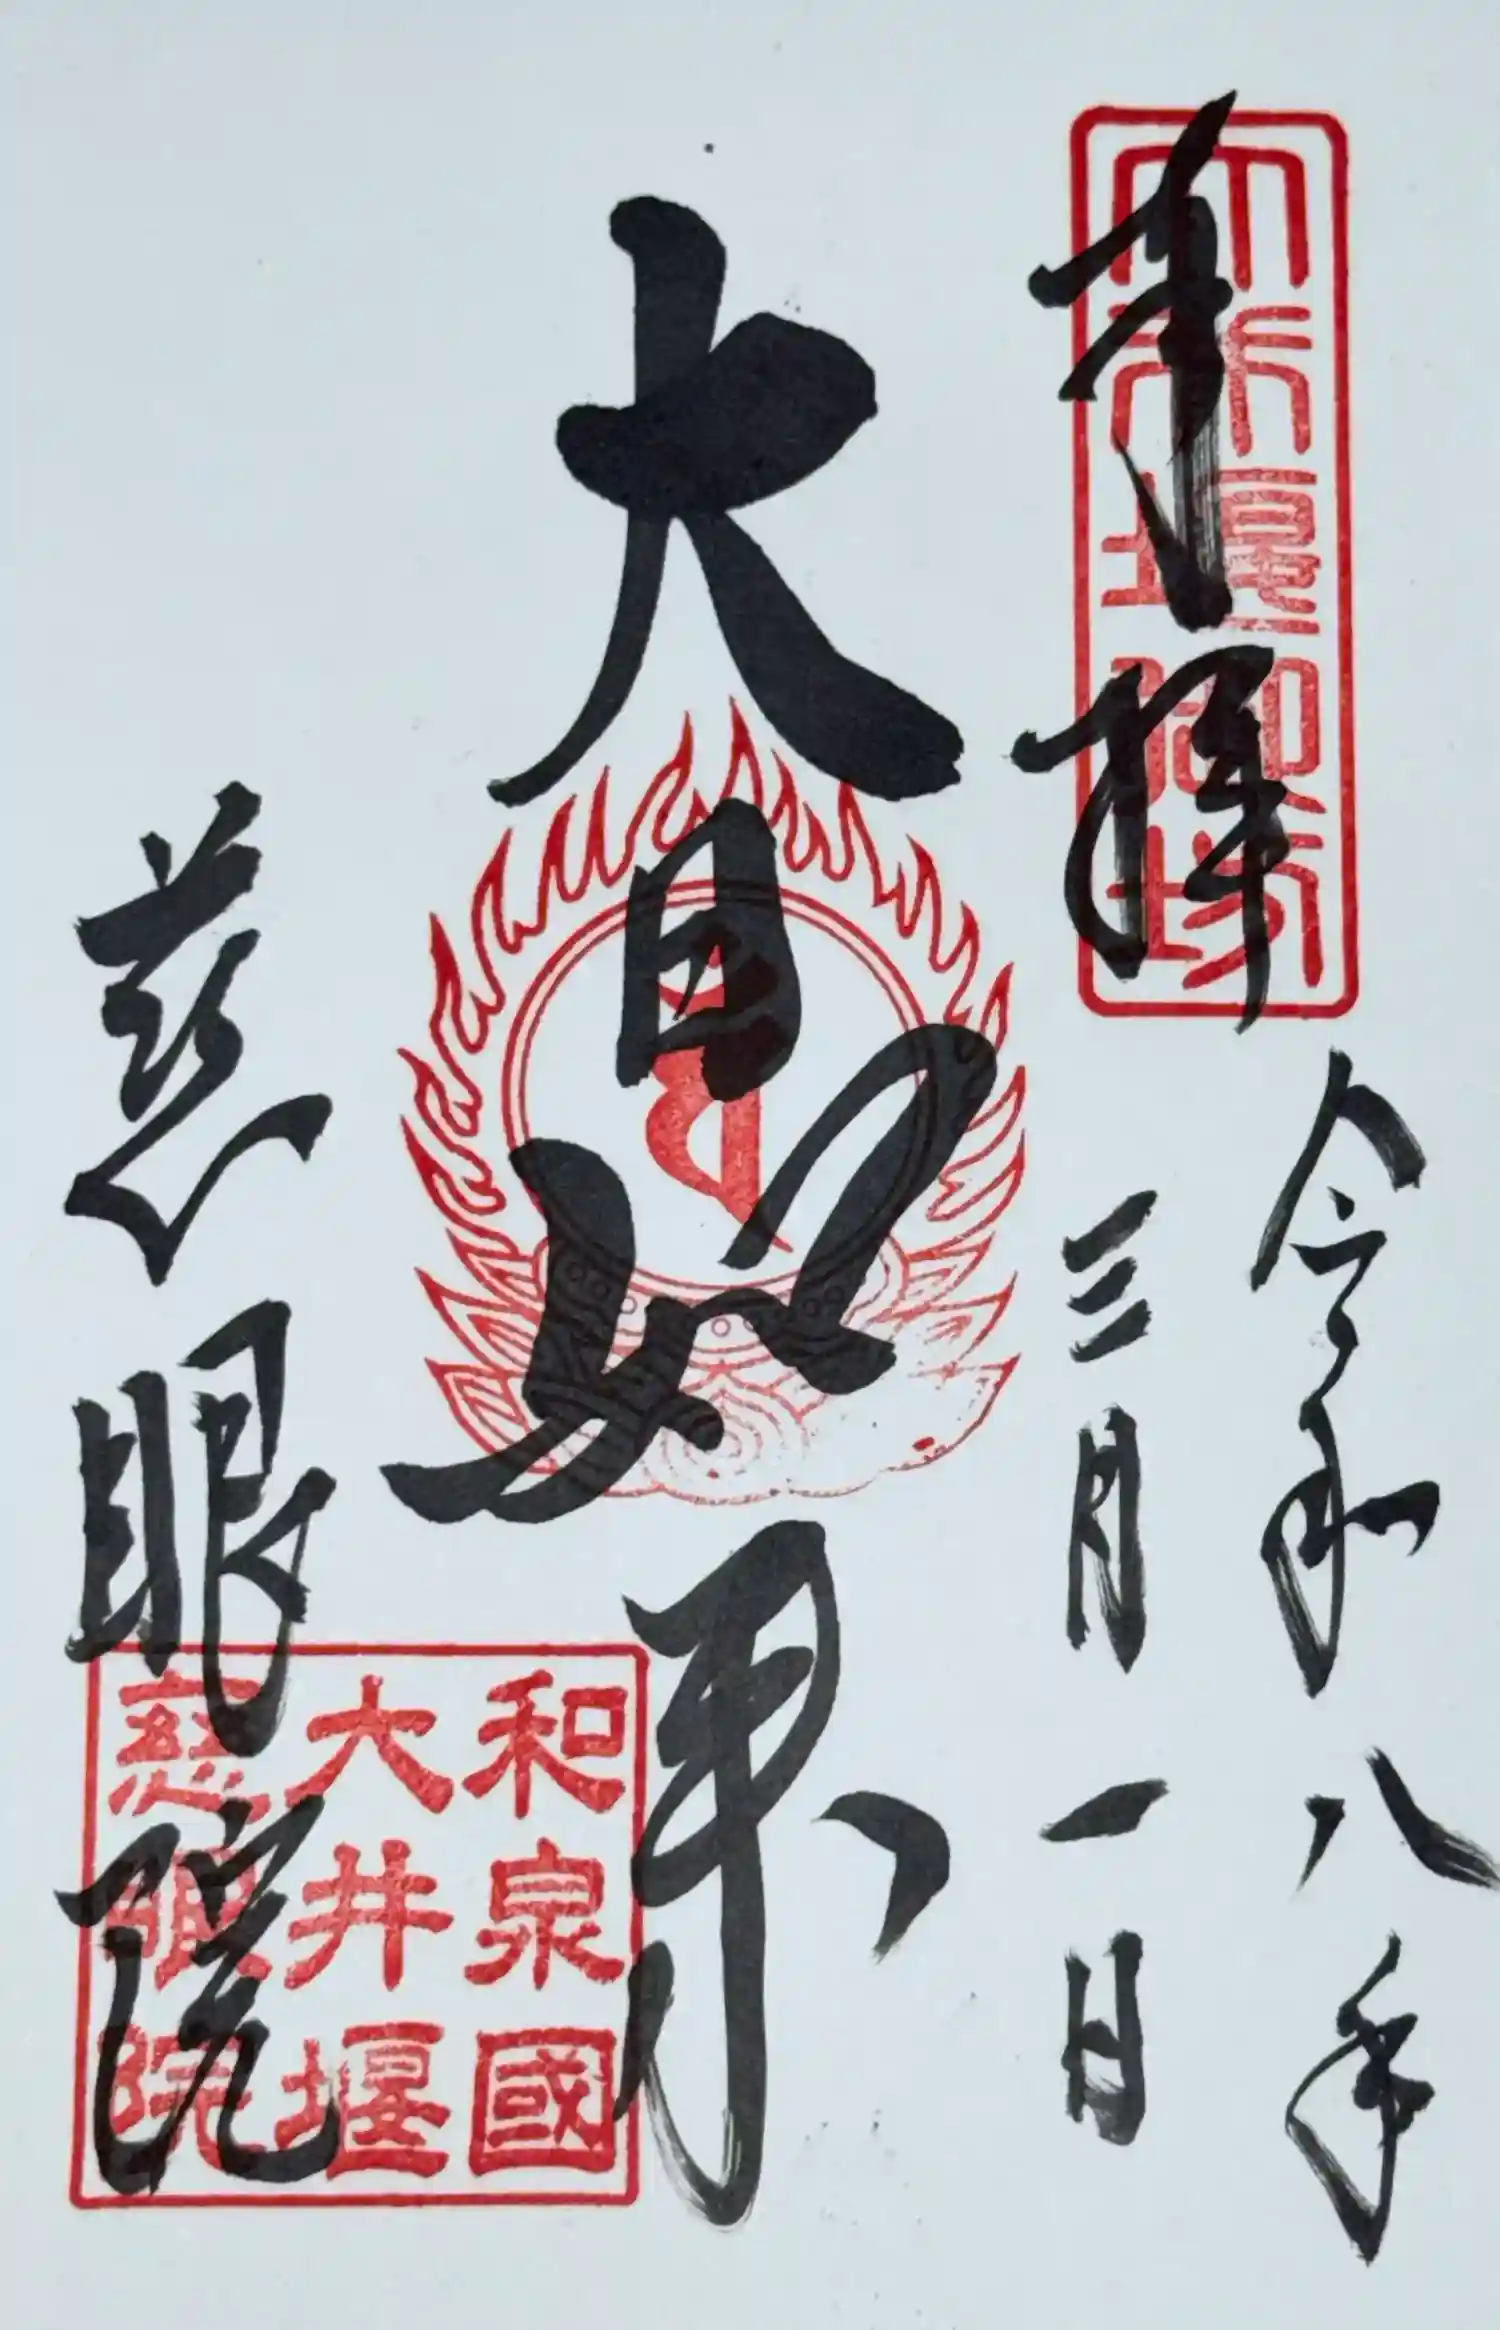 奉拝
大井堰御坊
令和八年
三月一日
大日如来
慈眼院
和泉國
大井堰
慈眼院